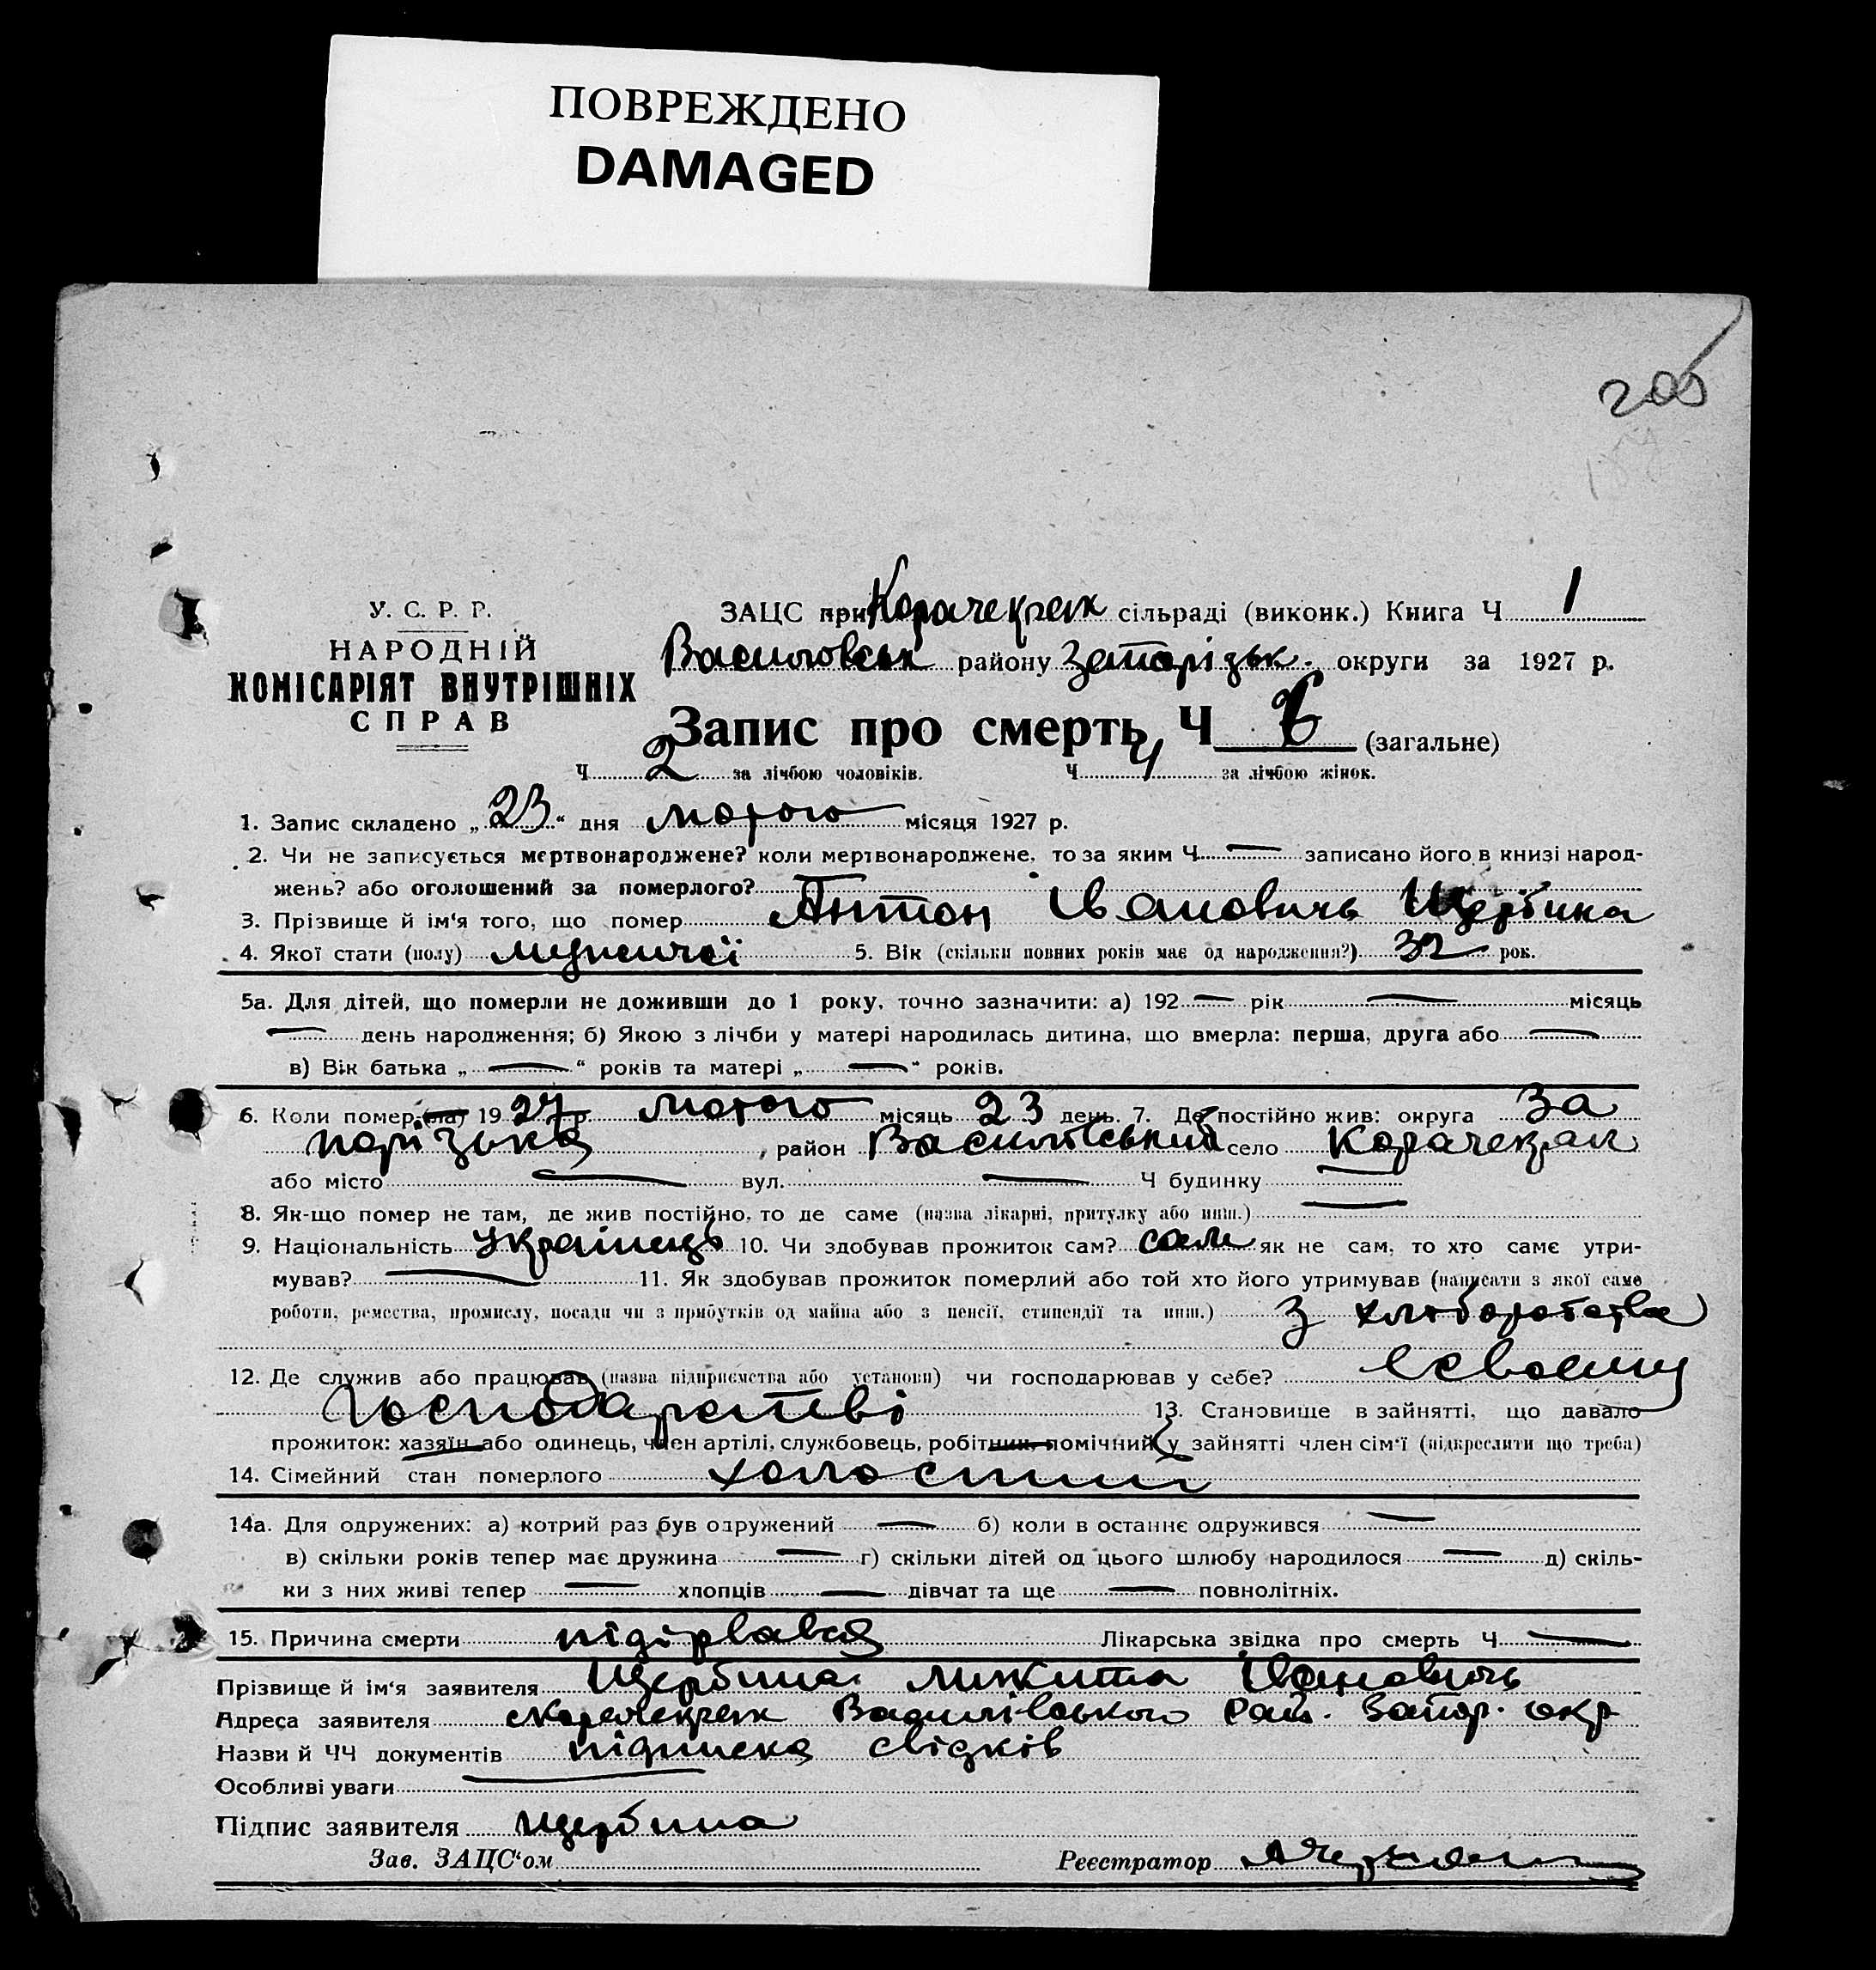 ПОВРЕЖДЕНО
DAMAGED
205
У. С. Р. Р.
НАРОДНІЙ
КОМІСАРІЯТ ВНУТРІШНІХ
СПРАВ
ЗАЦС при Карачекрак сільраді (виконк.) Книга Ч 1
Василювськ району Запорізьк. округи за 1927 р.
Запис про смерть Ч 6 (загальне)
Ч 2 за лічбою чоловіків. Ч 4 за лічбою жінок.
1. Запис складено „ 23 “ дня лютого місяця 1927 р.
2. Чи не записується мертвонароджене? коли мертвонароджене, то за яким Ч — записано його в книзі народ-
жень? або оголошений за померлого? —
3. Прізвище й ім‘я того, що помер Антон Іванович Щербина
4. Якої стати (полу) мужичеї 5. Вік (скільки повних років має од народження?) 32 рок.
5а. Для дітей, що померли не доживши до 1 року, точно зазначити: а) 192 — рік — місяць
— день народження; б) Якою з лічби у матері народилась дитина, що вмерла: перша, друга або —
в) Вік батька „ — “ років та матері „ — “ років.
6. Коли помер (ла) 19 27 р. лютого місяць 23 день. 7. Де постійно жив: округа За
порізька , район Василівський село Карачекрак
або місто — вул. — Ч будинку —
8. Як-що помер не там, де жив постійно, то де саме (назва лікарні, притулку або инш.) —
9. Національність Українець 10. Чи здобував прожиток сам? сам як не сам, то хто саме утри-
мував? — 11. Як здобував прожиток померлий або той хто його утримував (написати з якої саме
роботи, ремества, промислу, посади чи з прибутків од майна або з пенсії, стипендії та инш.) З хліборобства
12. Де служив або працював (назва підприємства або установи) чи господарював у себе? в своему
господарстві 13. Становище в зайнятті, що давало
прожиток: хазяїн або одинець, член артілі, службовець, робітник, помічний у зайнятті член сім‘ї (підкреслити що треба)
14. Сімейний стан померлого холостий
14а. Для одружених: а) котрий раз був одружений — б) коли в останнє одружився —
в) скільки років тепер має дружина — г) скільки дітей од цього шлюбу народилося — д) скіль-
ки з них живі тепер — хлопців — дівчат та ще — повнолітніх.
15. Причина смерти підірвався Лікарська звідка про смерть Ч —
Прізвище й ім‘я заявителя Щербина Микита Іванович
Адреса заявителя с Карачекрак Василівського Рай. Запор. окр
Назви й ЧЧ документів підписка свідків
Особливі уваги —
Підпис заявителя Щербина
Зав. ЗАЦС‘ом
Реєстратор